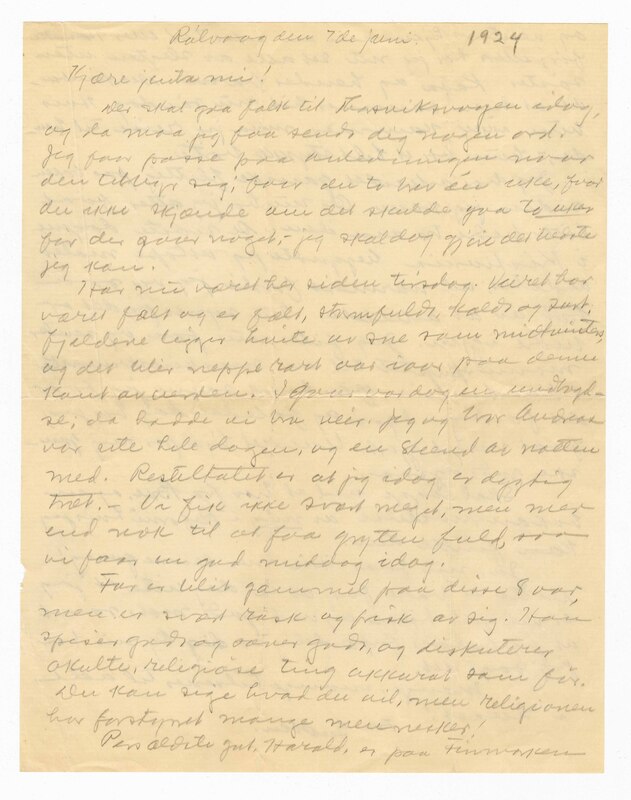 Rölvaag den 7de juni. 1924
Kjære jenta mi!
Der skal gaa folk til Havsviksvaagen idag,
og da maa jeg faa sende dig nogen ord.
Jeg faar passe paa anledningen naar
den tilbyr sig; bare du to har én uke, faar
du ikke skjænde om det skulde gaa to uker
før du faar noget, – jeg skal dog gjøre det beste
jeg kan.
Har nu været her siden tirsdag. Veiret har
været fælt og er fælt, stormfuldt, koldt og surt.
Fjeldene ligger hvite av sne som midtvinters,
og det blir neppe rart vaar iaar paa denne
kant av verden. Igaar var dog en undtagel-
se, da hadde vi bra veir. Jeg og bror Andreas
var ute hele dagen, og en steend av natten
med. Resultatet er at jeg idag er dygtig
træt. – Vi fik ikke svært meget, men mer
end nok til at faa gryten fuld, saa
vi faar en god middag idag.
Far er blit gammel paa disse 8 aar,
men er svært rask og frisk av sig. Han
spiser godt og sover godt, og diskuterer
okulte, religiøse ting akkurat som før.
Du kan sige hvad du vil, men religionen
har forstyrret mange mennesker!
Pers ældste gut, Harald, er paa Finmarken